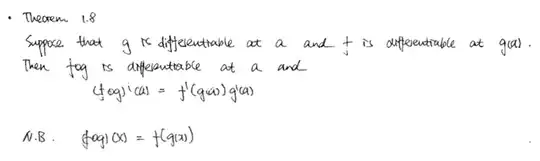 • Theorem 1.8
Suppose that g is differentiable at a and f is differentiable at g(a).
Then fog is differentiable at a and
(fog)'(a) = f'(g(a))g'(a)
N.B. (fog)(x) = f(g(x))